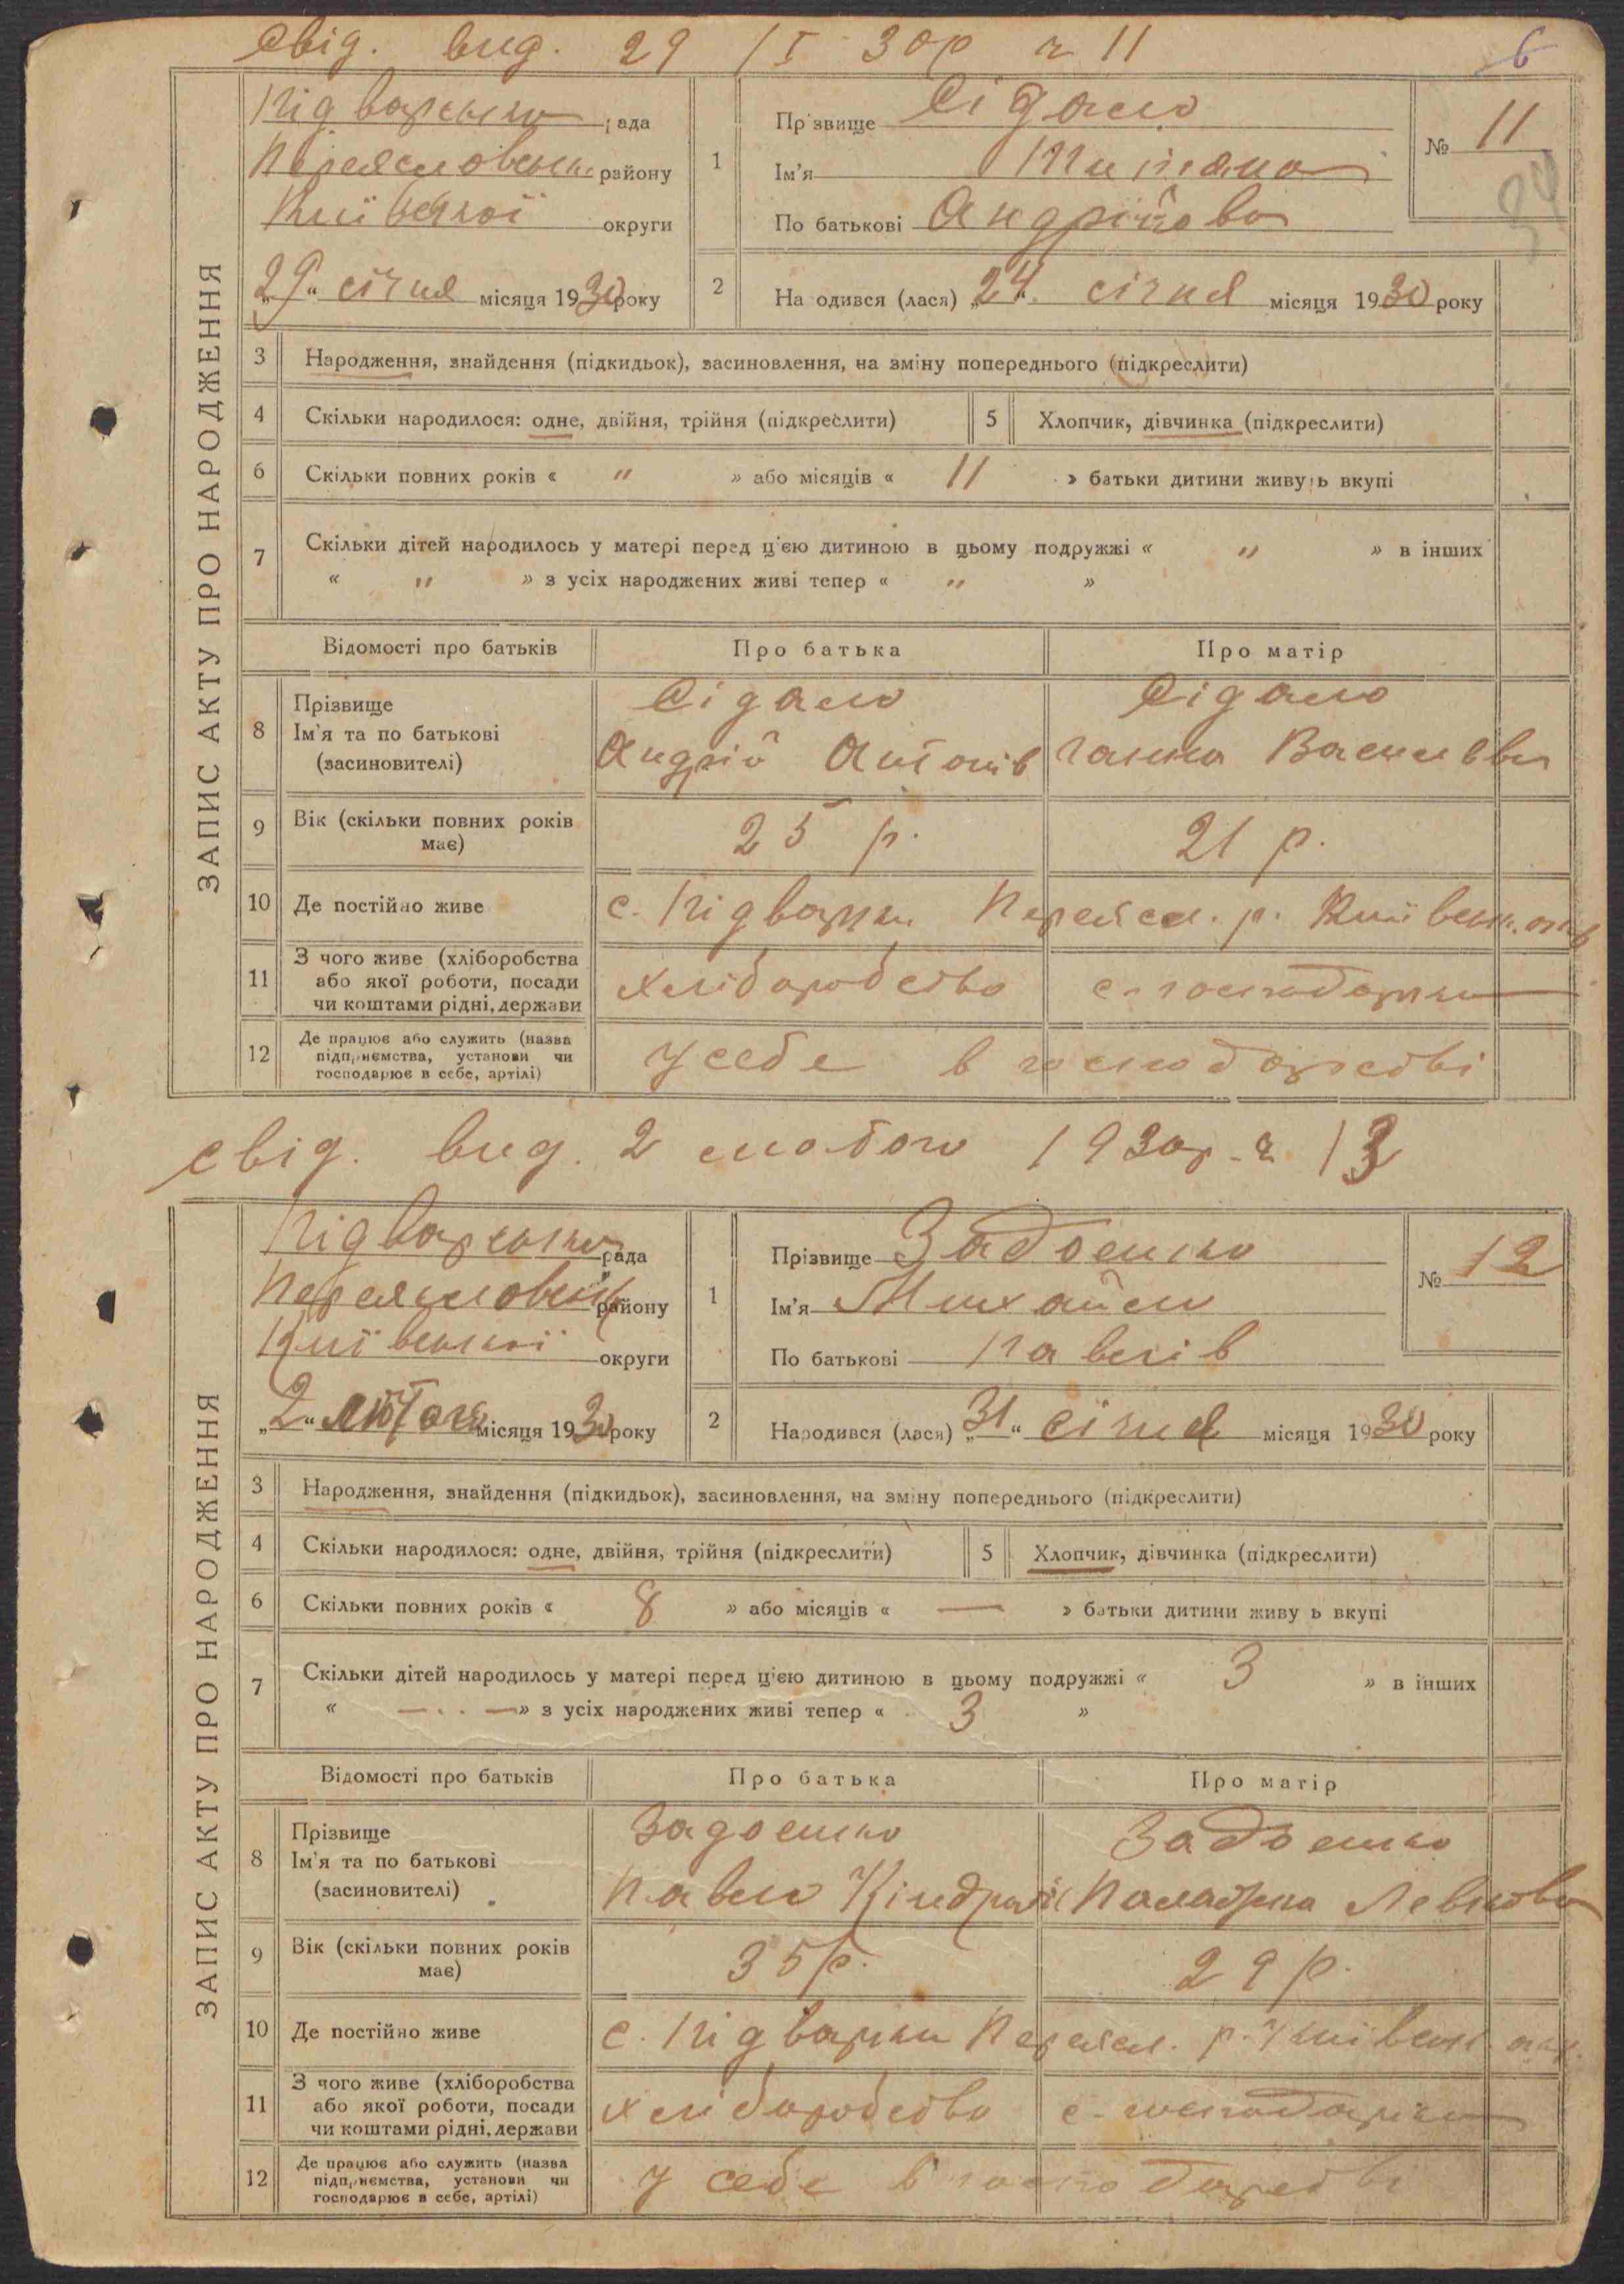 свід. вид. 29 /I 30р ч 11
6
ЗАПИС АКТУ ПРО НАРОДЖЕННЯ
Підварська рада
Переяславськ. району
Київської округи
„29“ січня місяця 1930 року
1
Прізвище Сідало
Ім'я Титяна
По батькові Андріївна
№ 11
34
2
Народився (лася) „24“ січня місяця 1930 року
3 Народження, знайдення (підкидьок), засиновлення, на зміну попереднього (підкреслити)
4 Скільки народилося: одне, двійня, трійня (підкреслити) 5 Хлопчик, дівчинка (підкреслити)
6 Скільки повних років « " » або місяців « 11 » батьки дитини живуть вкупі
7 Скільки дітей народилось у матері перед ц'єю дитиною в цьому подружжі « " » в інших
« " » з усіх народжених живі тепер « " »
Відомості про батьків Про батька Про матір
8 Прізвище Ім'я та по батькові (засиновителі)
Сідало Сідало
Андрій Антонів Ганна Василівна
9 Вік (скільки повних років має) 25 р. 21 р.
10 Де постійно живе с. Підварки Переясл. р. Київськ. окр
11 З чого живе (хліборобства або якої роботи, посади чи коштами рідні, держави хліборобство с-господарки
12 Де працює або служить (назва підприємства, установи чи господарює в себе, артілі) у себе в господарстві
свід. вид. 2 1930р. ч 13
ЗАПИС АКТУ ПРО НАРОДЖЕННЯ
Підварська рада
Переяславськ району
Київської округи
„2“ лютого місяця 1930 року
1
Прізвище Задоенко
Ім'я Михайло
По батькові Павлів
№ 12
2
Народився (лася) „31“ січня місяця 1930 року
3 Народження, знайдення (підкидьок), засиновлення, на зміну попереднього (підкреслити)
4 Скільки народилося: одне, двійня, трійня (підкреслити) 5 Хлопчик, дівчинка (підкреслити)
6 Скільки повних років « 8 » або місяців « — » батьки дитини живуть вкупі
7 Скільки дітей народилось у матері перед ц'єю дитиною в цьому подружжі « 3 » в інших
« — . . — » з усіх народжених живі тепер « 3 »
Відомості про батьків Про батька Про матір
8 Прізвище Ім'я та по батькові (засиновителі)
Задоенко Задоенко
Павло Кіндратів Палажка Левковна
9 Вік (скільки повних років має) 35 р. 29 р.
10 Де постійно живе с. Підварки Переясл. р. Київськ окр.
11 З чого живе (хліборобства або якої роботи, посади чи коштами рідні, держави хліборобство с-господарки
12 Де працює або служить (назва підприємства, установи чи господарює в себе, артілі) у себе в господарстві